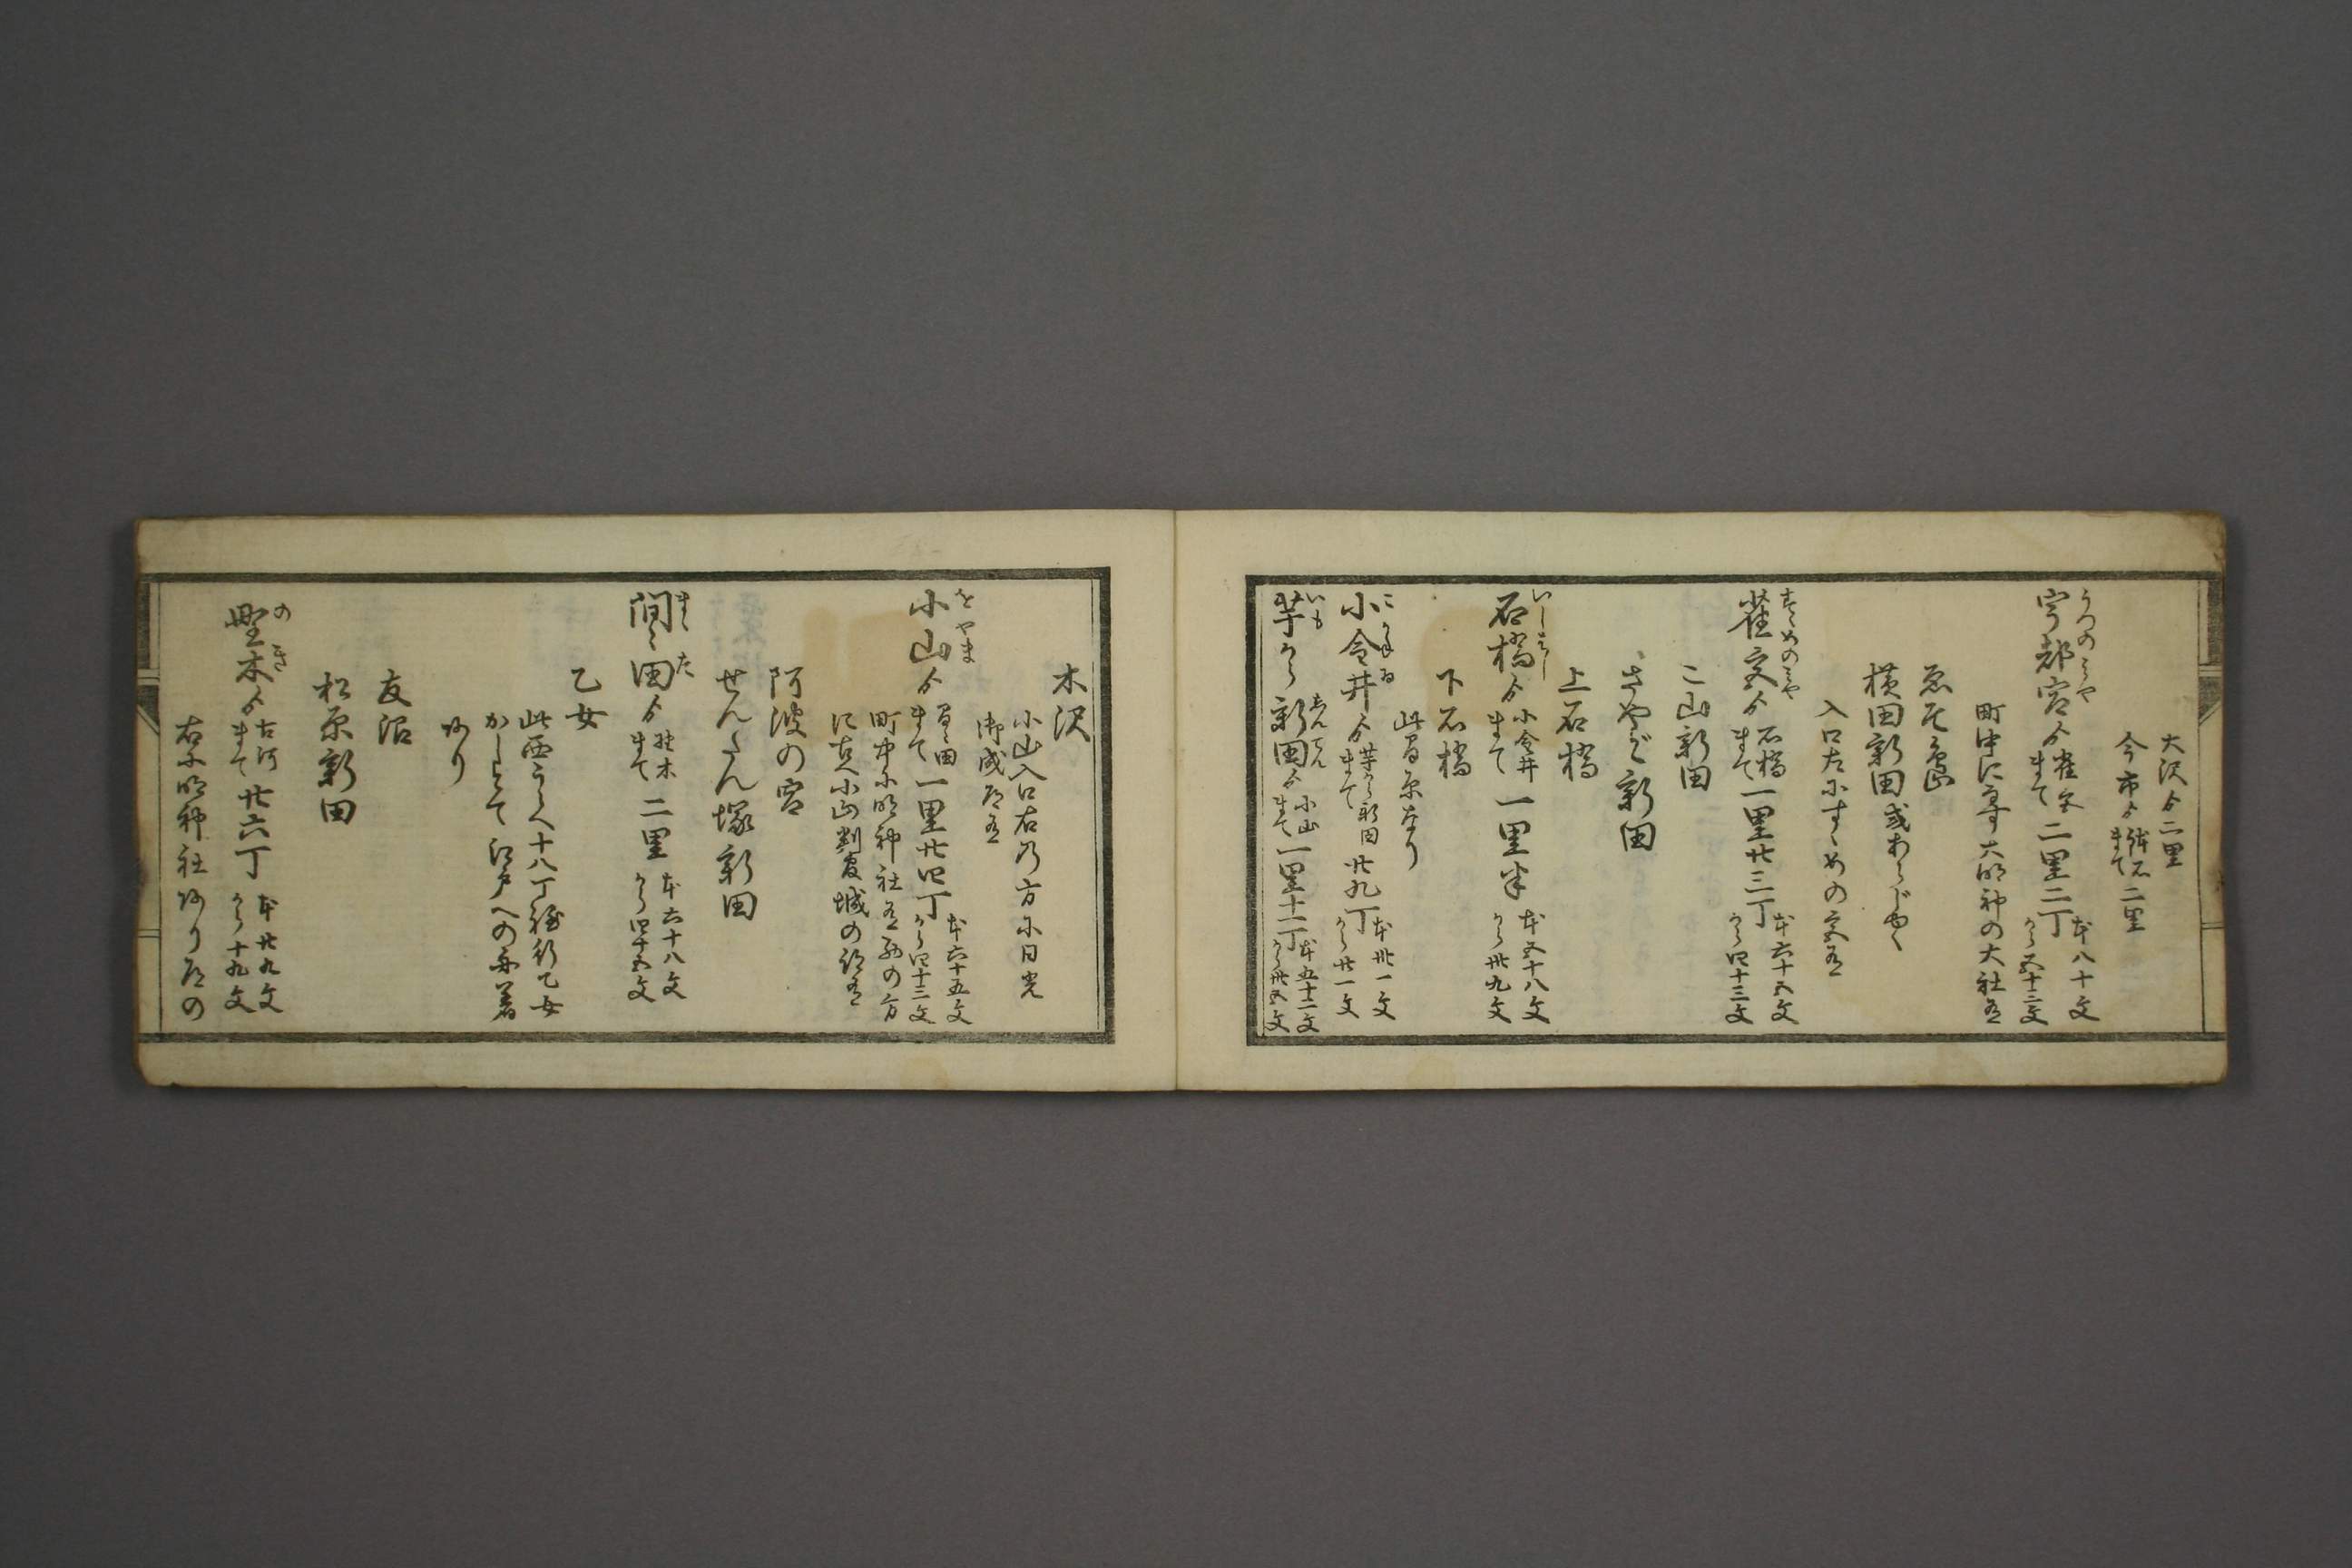 大沢ゟ二里
今市ゟ鉢石まて二里
うつのみや
宇都宮ゟ雀宮まて二里二丁 本八十文 から五十三文
町中に宇大明神の大社有
横田新田或あらじゆく
入口左にすゝめの宮有
すゝめのみや
雀宮ゟ石橋まて一里廿三丁 本六十五文 から四十三文
こ山新田
さやど新田
上石橋
いしはし
石橋ゟ小金井まて一里半 本五十八文 から卅九文
下石橋
此間原なり
こかねゐ
小金井ゟ芋から新田まて廿九丁 本卅一文 から廿一文
いも しんてん
芋から新田ゟ小山まて一里十二丁 本五十二文 から卅五文
木沢
小山入口右乃方に日光
御成道有
をやま
小山ゟ間々田まて一里廿四丁 本六十五文 から四十三文
町中に明神社有西の方
に古へ小山判官城の跡有
阿波の宮
せんさん塚新田
まゝた
間々田ゟ野木まて二里 本六十八文 から四十五文
乙女
此西うらへ十八丁程行乙女
かしとて江戸への舟着
あり
友沼
松原新田
のき
野木ゟ古河まて廿六丁 本廿九文 から十九文
右に明神社あり道の